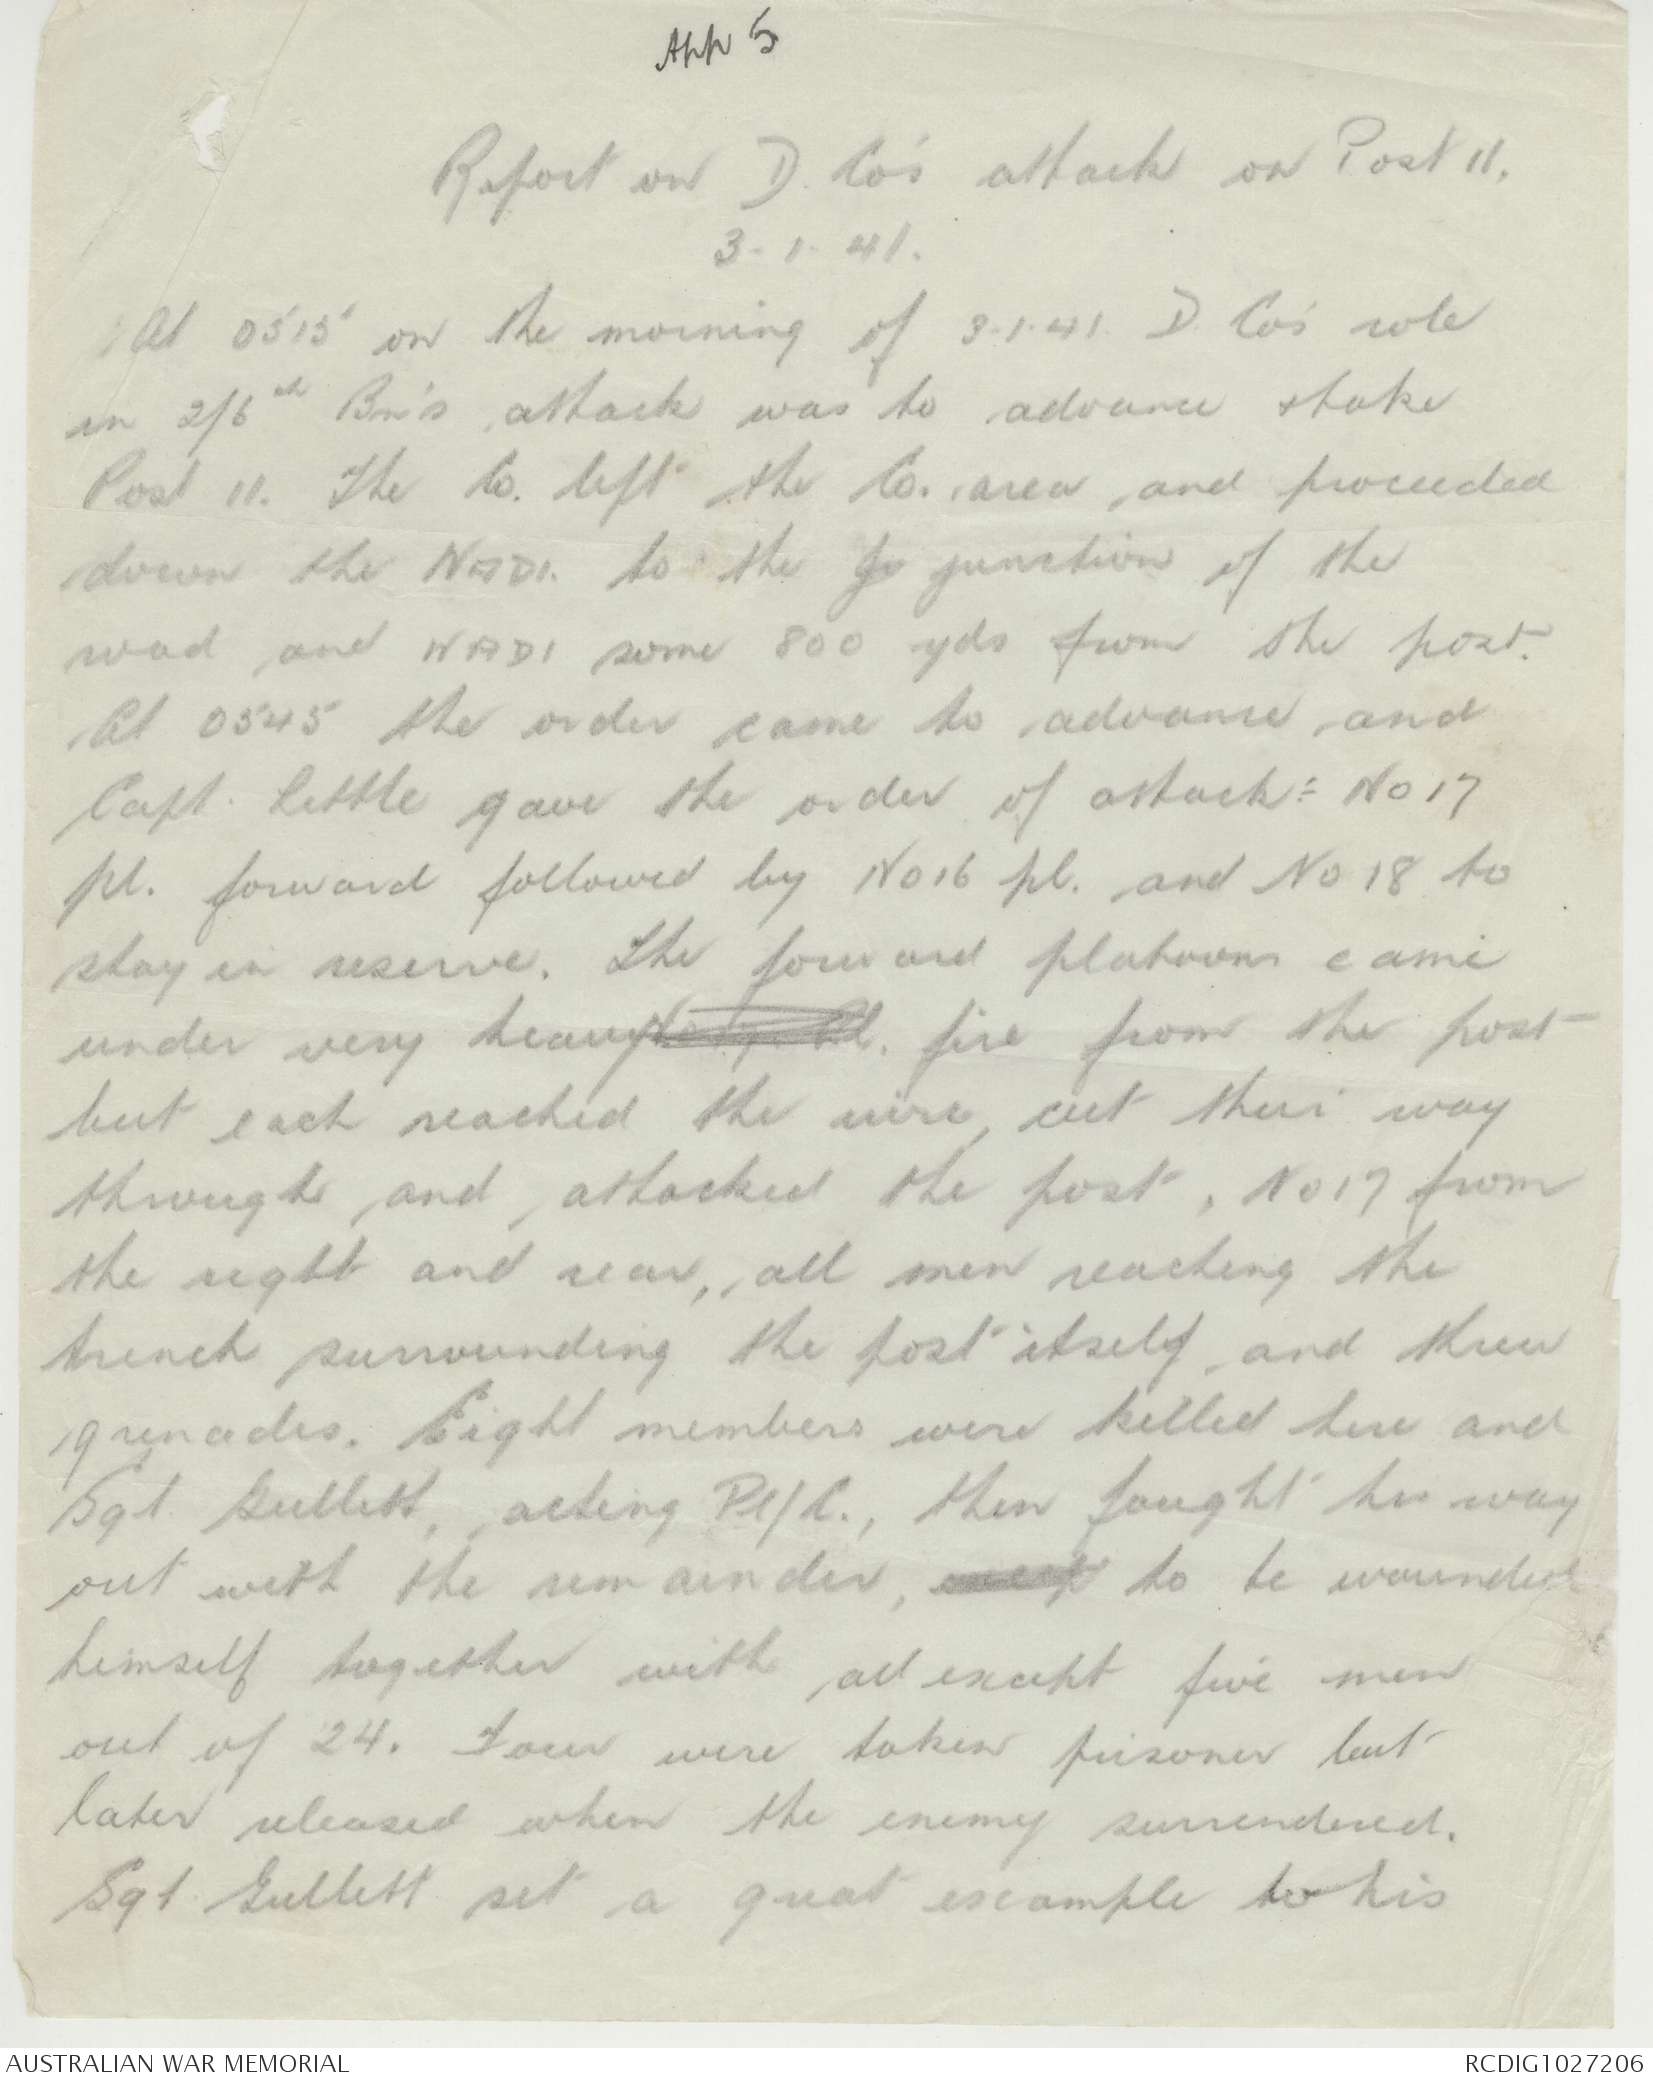 App 5
Report on D. Co's attack on Post 11.
3-1-41.
At 0515 on the morning of 3-1-41 D. Co's role
in 2/6th Bn's attack was to advance & take
Post 11. The Co. left the Co. area and proceeded
down the WADI to the ju junction of the
wad and WADI some 800 yds from the post.
At 0545 the order came to advance and
Capt. Little gave the order of attack:- No 17
pl. forward followed by No 16 pl. and No 18 to
stay in reserve. The forward platoons came
under very heavy fire from the post
but each reached the wire, cut their way
through and attacked the post, No 17 from
the right and rear, all men reaching the
trench surrounding the post itself and threw
grenades. Eight members were killed here and
Sgt. Gullett, acting Pl/C., then fought his way
out with the remainder, to be wounded
himself together with all except five men
out of 24. Four were taken prisoner but
later released when the enemy surrendered.
Sgt. Gullett set a great example to his
AUSTRALIAN WAR MEMORIAL
RCDIG1027206